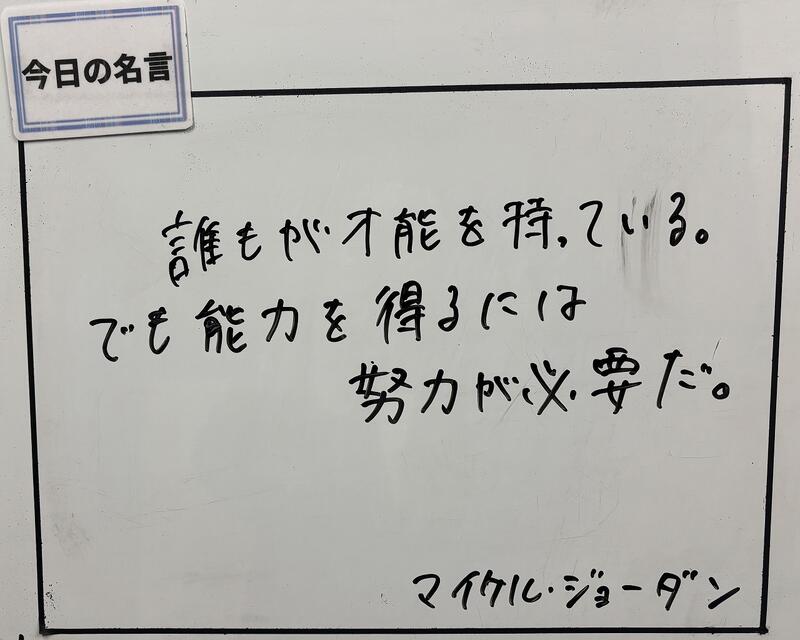 今日の名言
誰もが才能を持っている。
でも能力を得るには
努力が必要だ。
マイケル・ジョーダン